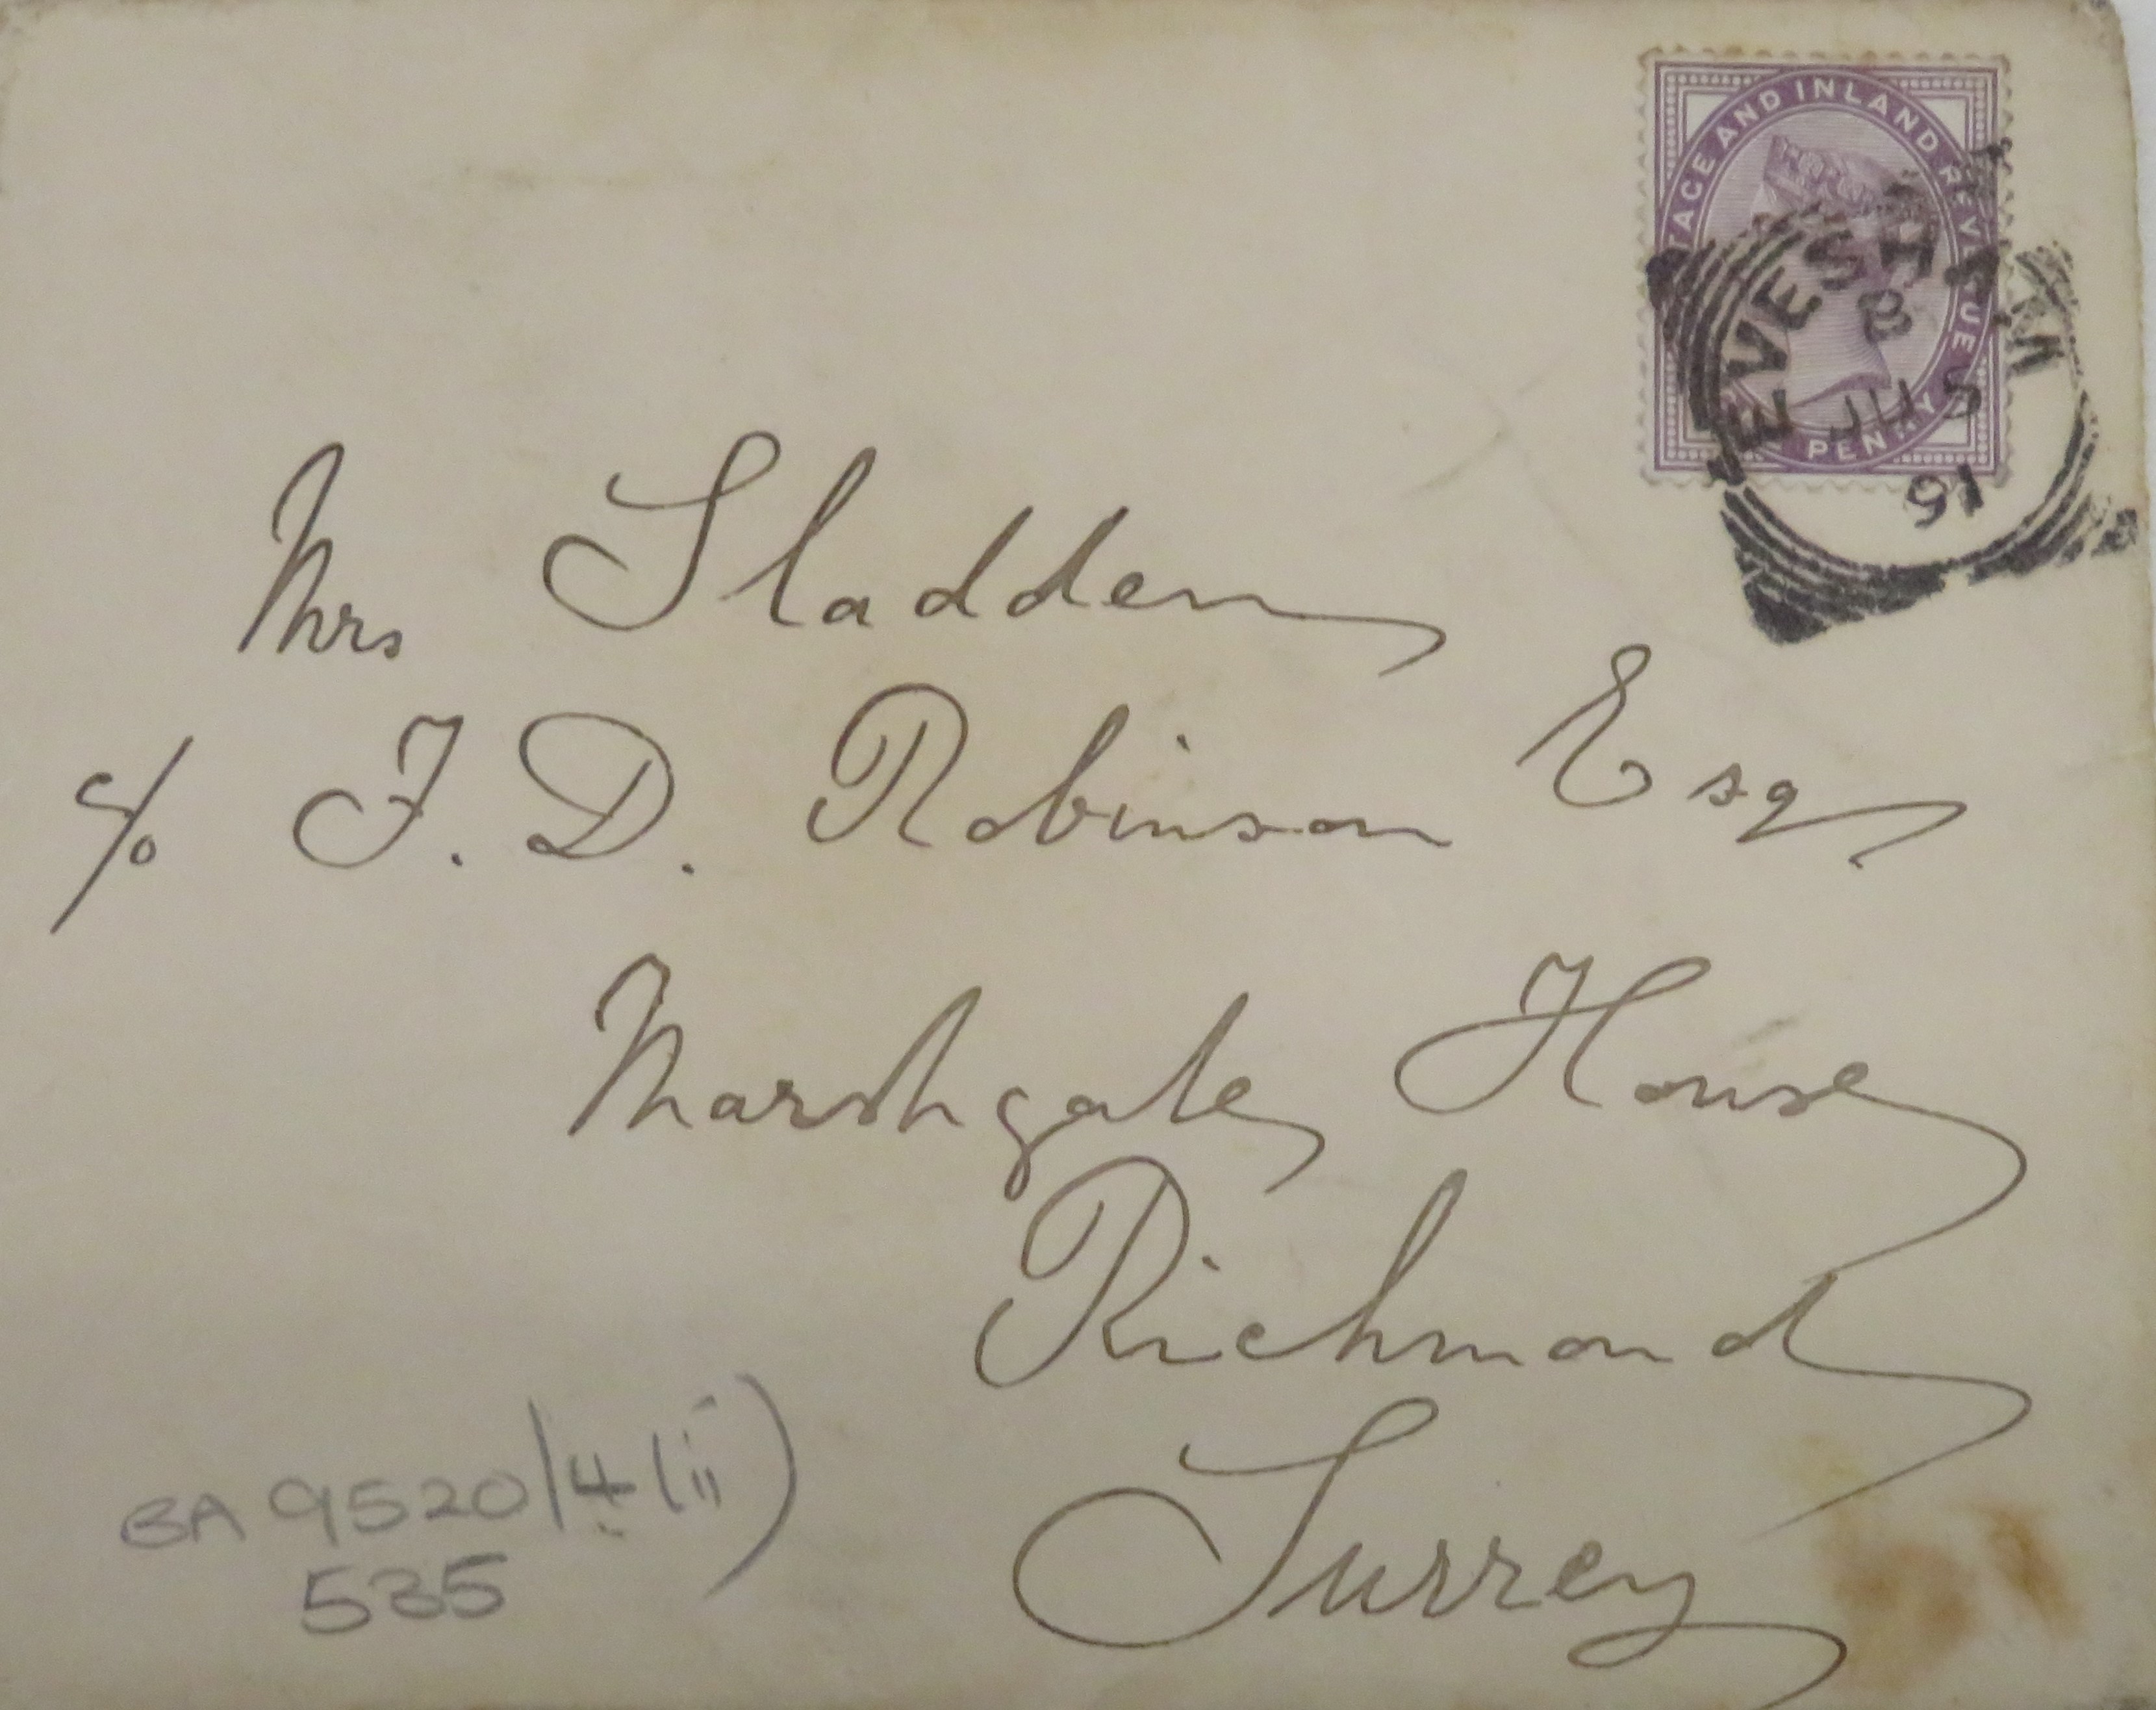 POSTAGE AND INLAND REVENUE
PENNY
EVESHAM
JU 5
91
Mrs Sladden
c/o F. D. Robinson Esq
Marshgate House
Richmond
Surrey
BA 9520/4(ii)
535